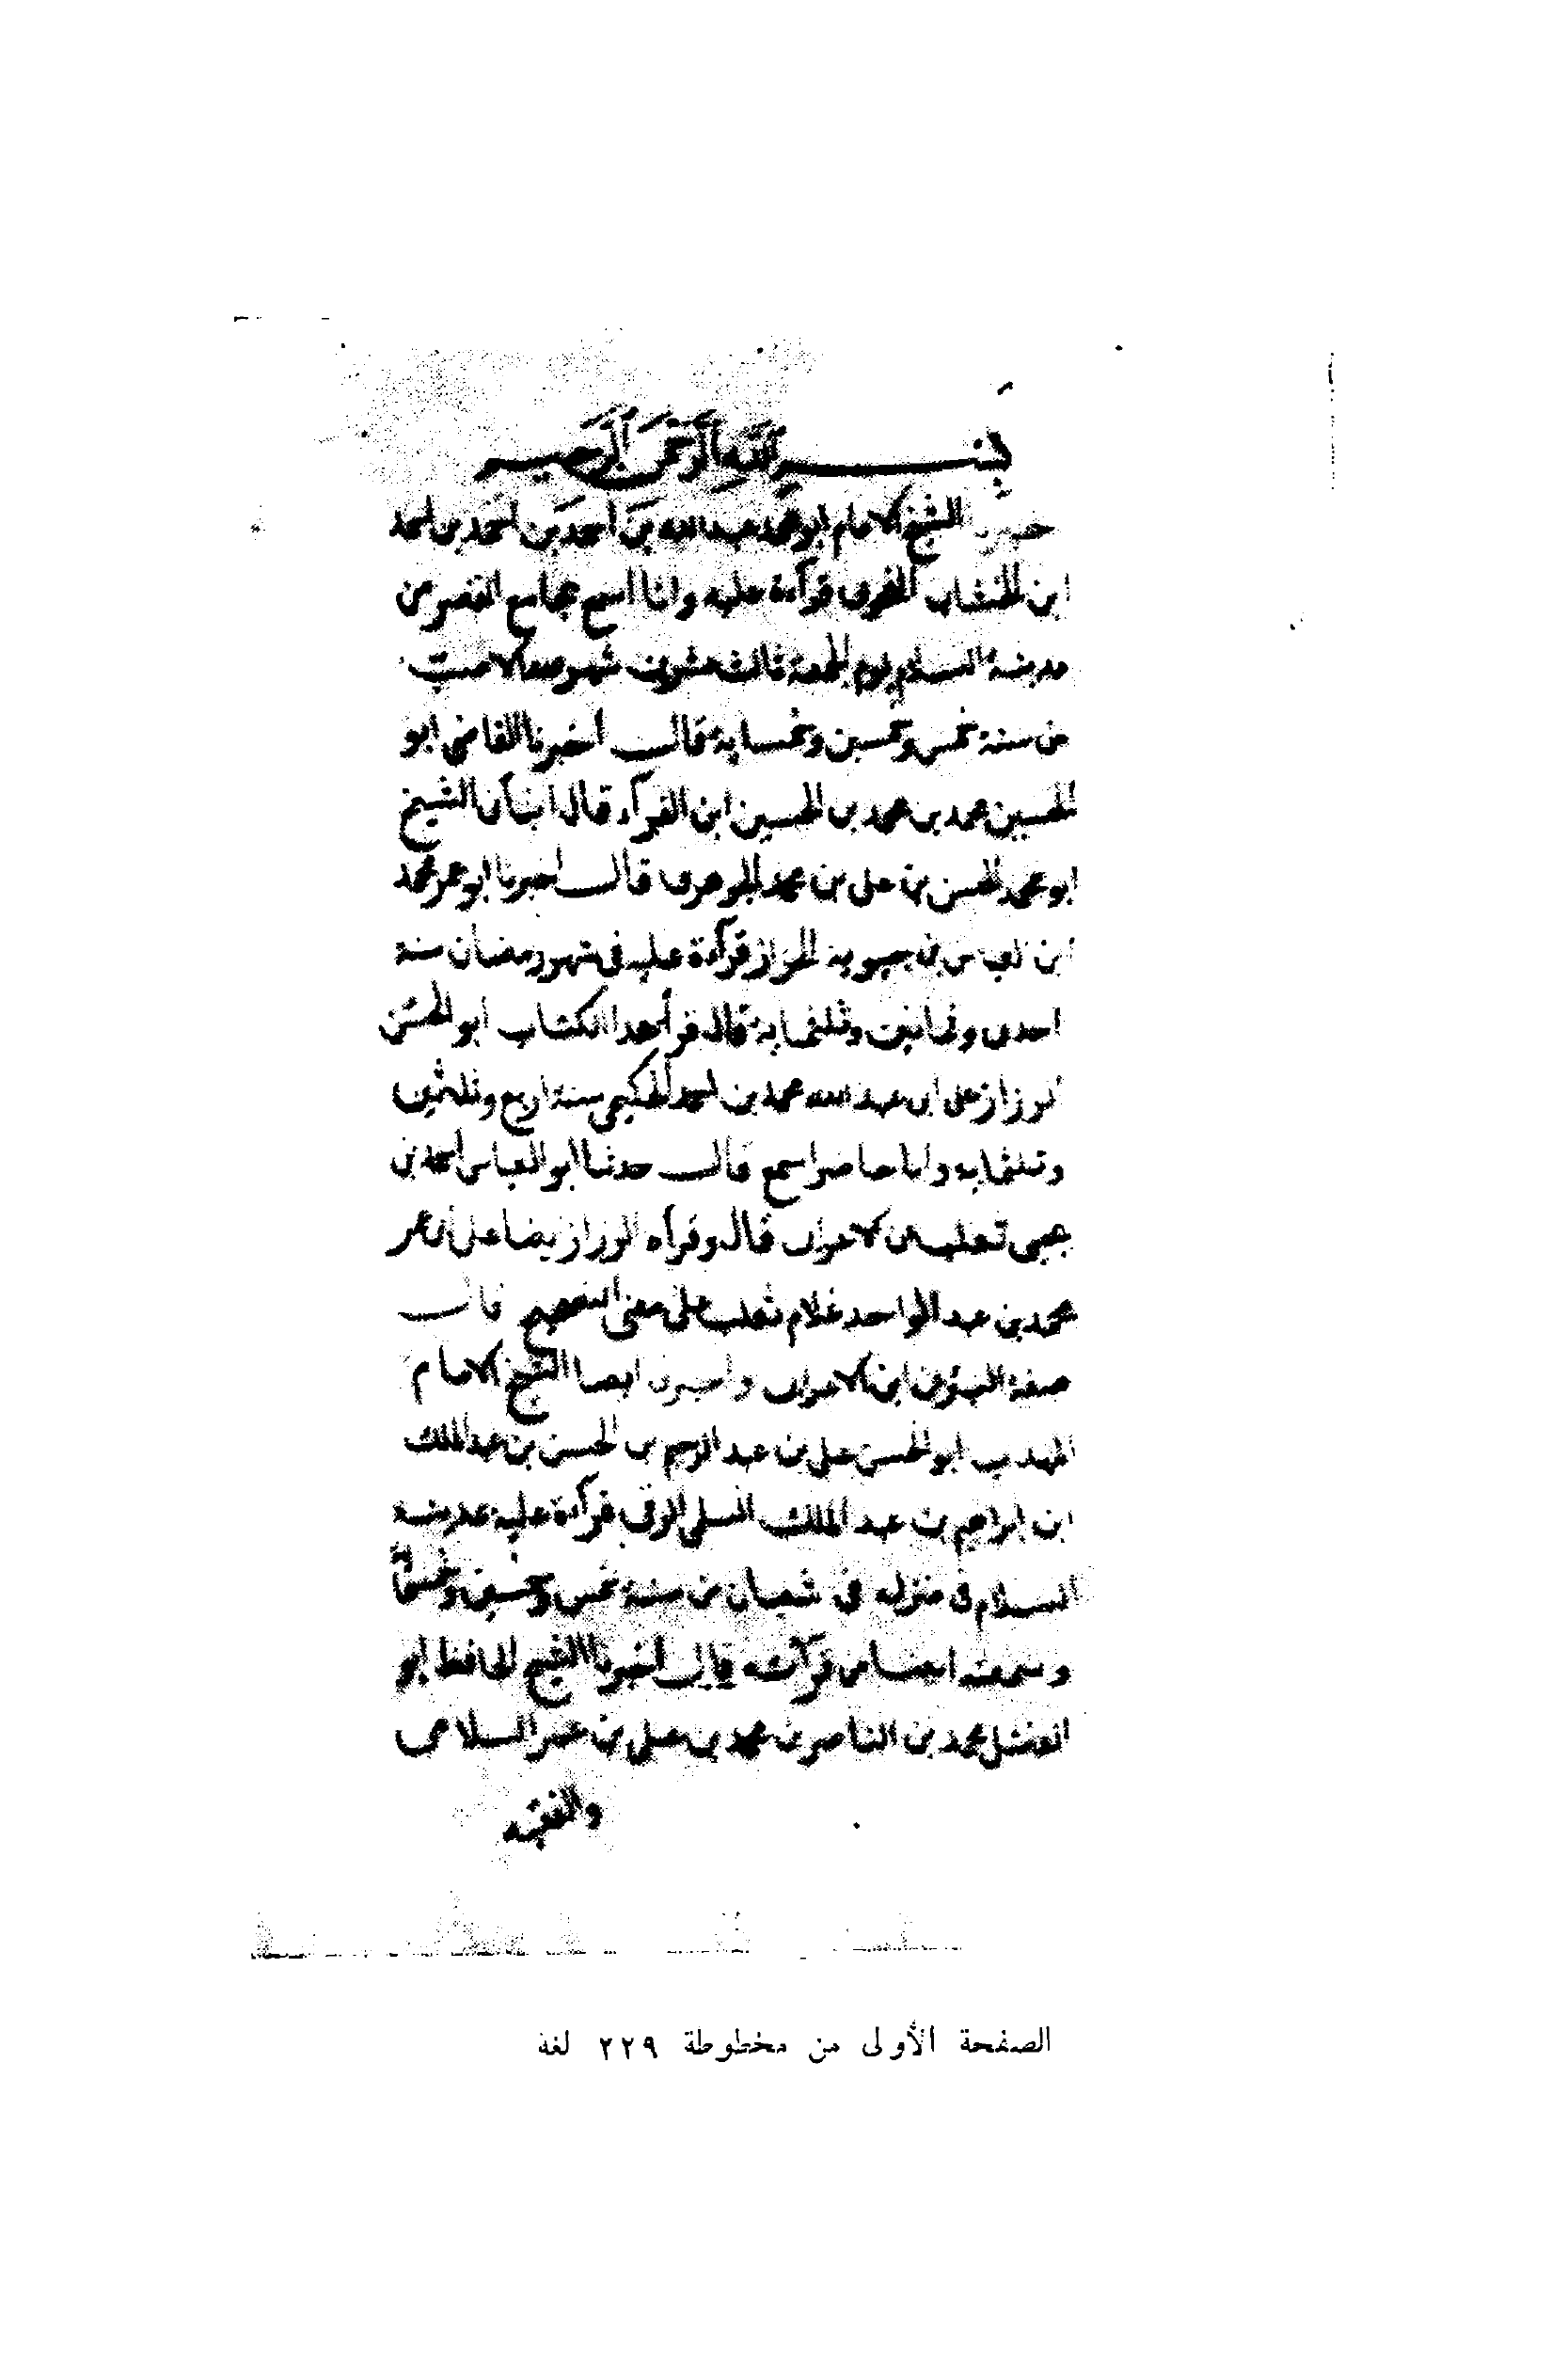 بسم الله الرحمن الرحيم
الشيخ الامام ابو محمد عبد الله بن احمد بن احمد بن احمد
ابن الخشاب النحوى قرآءة عليه وانا اسمع بجامع القصر من
مدينة السلام يوم الجمعة ثالث عشرين شهر الاصب
من سنة خمس وخمسين وخمسماية قال اخبرنا القاضى ابو
الحسين محمد بن محمد بن الحسين ابن الفرآء قال انبأنا الشيخ
ابو محمد الحسن بن على بن محمد الجوهرى قال اخبرنا ابو عمر محمد
ابن بن حيويه الخزاز قرآءة عليه فى شهر رمضان سنة
احدى وثمانين وثلثماية قال قرأ هذا الكتاب ابو الحسن
الرزاز على ابى عبد الله محمد بن احمد الحكيمى سنة اربع وثلثين
وثلثمايه وانا حاضر اسمع قال حدثنا ابو العباس احمد بن
يحيى ثعلب عن الاعرابى قال وقرأه الرزاز ايضا على ابى عمر
محمد بن عبد الواحد غلام ثعلب على معنى التصحيح قال
صفة البئر عن ابن الاعرابى واخبرنا ايضا الشيخ الامام
المهذب ابو الحسن على بن عبد الرحيم بن الحسن بن عبد الملك
ابن ابراهيم بن عبد الملك السلمى الرقى قرآءة عليه بمدينة
السلام فى منزله فى شعبان من سنة خمس وخمسين وخمسمائة
وسمعته ايضا من قرآئته قال اخبرنا الشيخ الحافظ ابو
الفضل محمد بن الناصر بن محمد بن على بن عمر السلامى
والفقيه
الصفحة الأولى من مخطوطة ٢٢٩ لغة